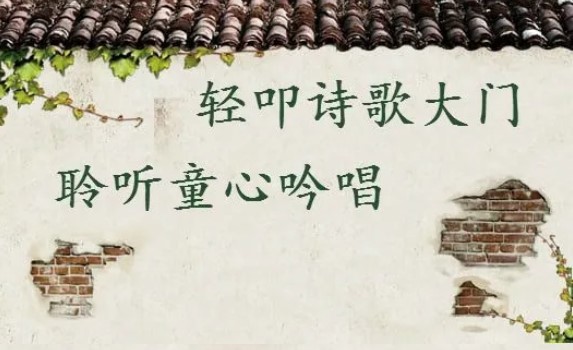 轻叩诗歌大门
聆听童心吟唱